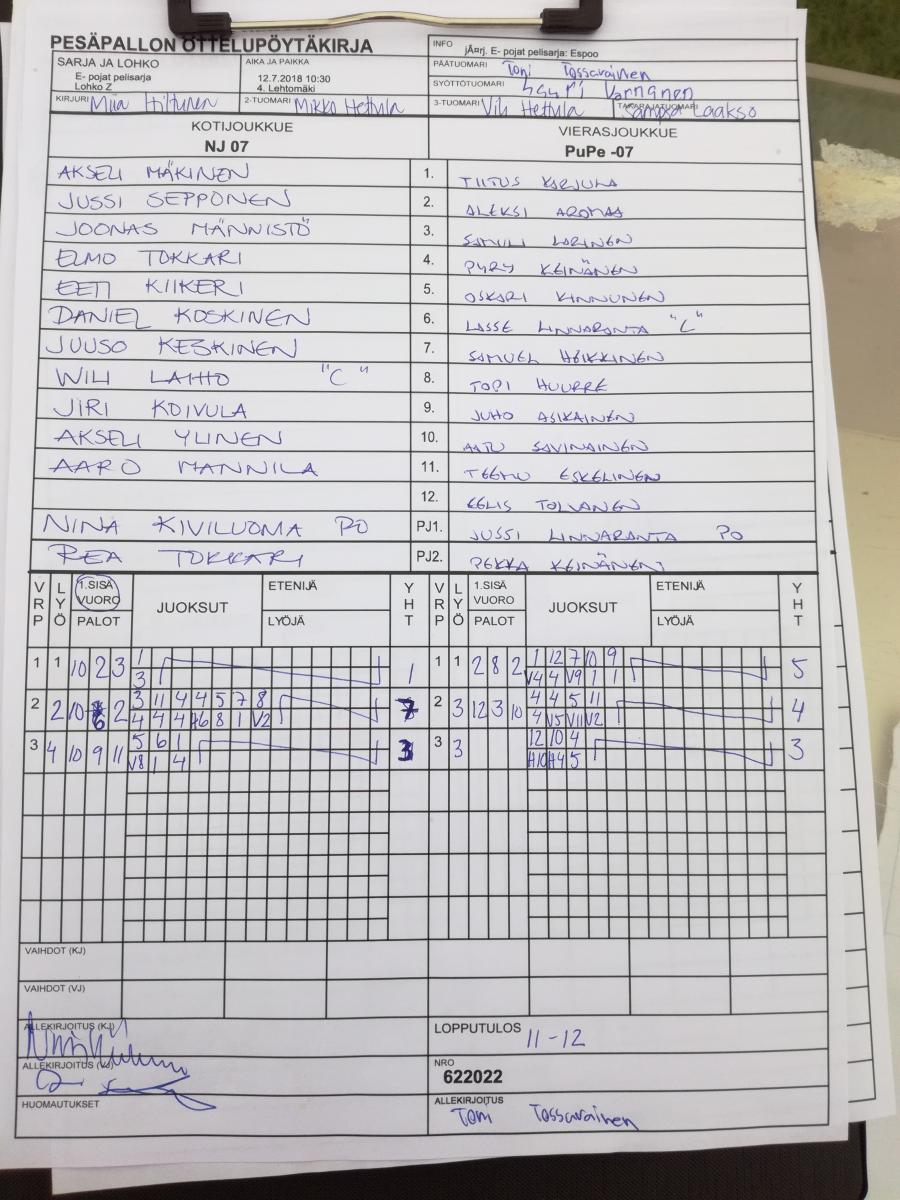 PESÄPALLON OTTELUPÖYTÄKIRJA
INFO jÃ¤rj. E- pojat pelisarja: Espoo
SARJA JA LOHKO
E- pojat pelisarja
Lohko Z
AIKA JA PAIKKA
12.7.2018 10:30
4. Lehtomäki
PÄÄTUOMARI Toni Tossavainen
SYÖTTÖTUOMARI
KIRJURI Miia Hiltunen
2-TUOMARI Mikko Hettula
3-TUOMARI Vili Hettula
TAKARAJATUOMARI Sampsa Laakso
KOTIJOUKKUE
NJ 07
VIERASJOUKKUE
PuPe -07
AKSELI MÄKINEN 1. TIITUS KARJULA
JUSSI SEPPONEN 2. ALEKSI AROMAA
JOONAS MÄNNISTÖ 3. LARINEN
ELMO TOKKARI 4. PYRY KEINÄNEN
EETI KIIKERI 5. OSKARI KINNUNEN
DANIEL KOSKINEN 6. LASSE LINNARANTA "C"
JUUSO KESKINEN 7. SAMUEL HEIKKINEN
WILI LAIHO "C" 8. TOPI HUURRE
JIRI KOIVULA 9. JUHO ASIKAINEN
AKSELI YLINEN 10. AATU SAVINAINEN
AARO MANNILA 11. TEEMU ESKELINEN
12. EELIS TOLVANEN
NINA KIVILUOMA PO PJ1. JUSSI LINNARANTA PO
REA TOKKARI PJ2. PEKKA KEINÄNEN
VRP LYÖ 1.SISÄ VUORO PALOT JUOKSUT ETENIJÄ LYÖJÄ YHT VRP LYÖ 1.SISÄ VUORO PALOT JUOKSUT ETENIJÄ LYÖJÄ YHT
1 1 10 2 3 1 1 1 2 8 2 1 12 7 10 9 5
3 V4 4 V9 1 1
2 2 10 6 2 3 11 4 4 5 7 8 7 2 3 12 3 10 4 4 5 11 4
4 4 4 6 8 1 V2 4 V5 V11 V2
3 4 10 9 11 5 6 1 3 3 3 12 10 4 3
V8 1 4 H10 H4 5
VAIHDOT (KJ)
VAIHDOT (VJ)
ALLEKIRJOITUS (KJ)
LOPPUTULOS 11-12
ALLEKIRJOITUS (VJ)
NRO
622022
HUOMAUTUKSET
ALLEKIRJOITUS
Tom Tossavainen